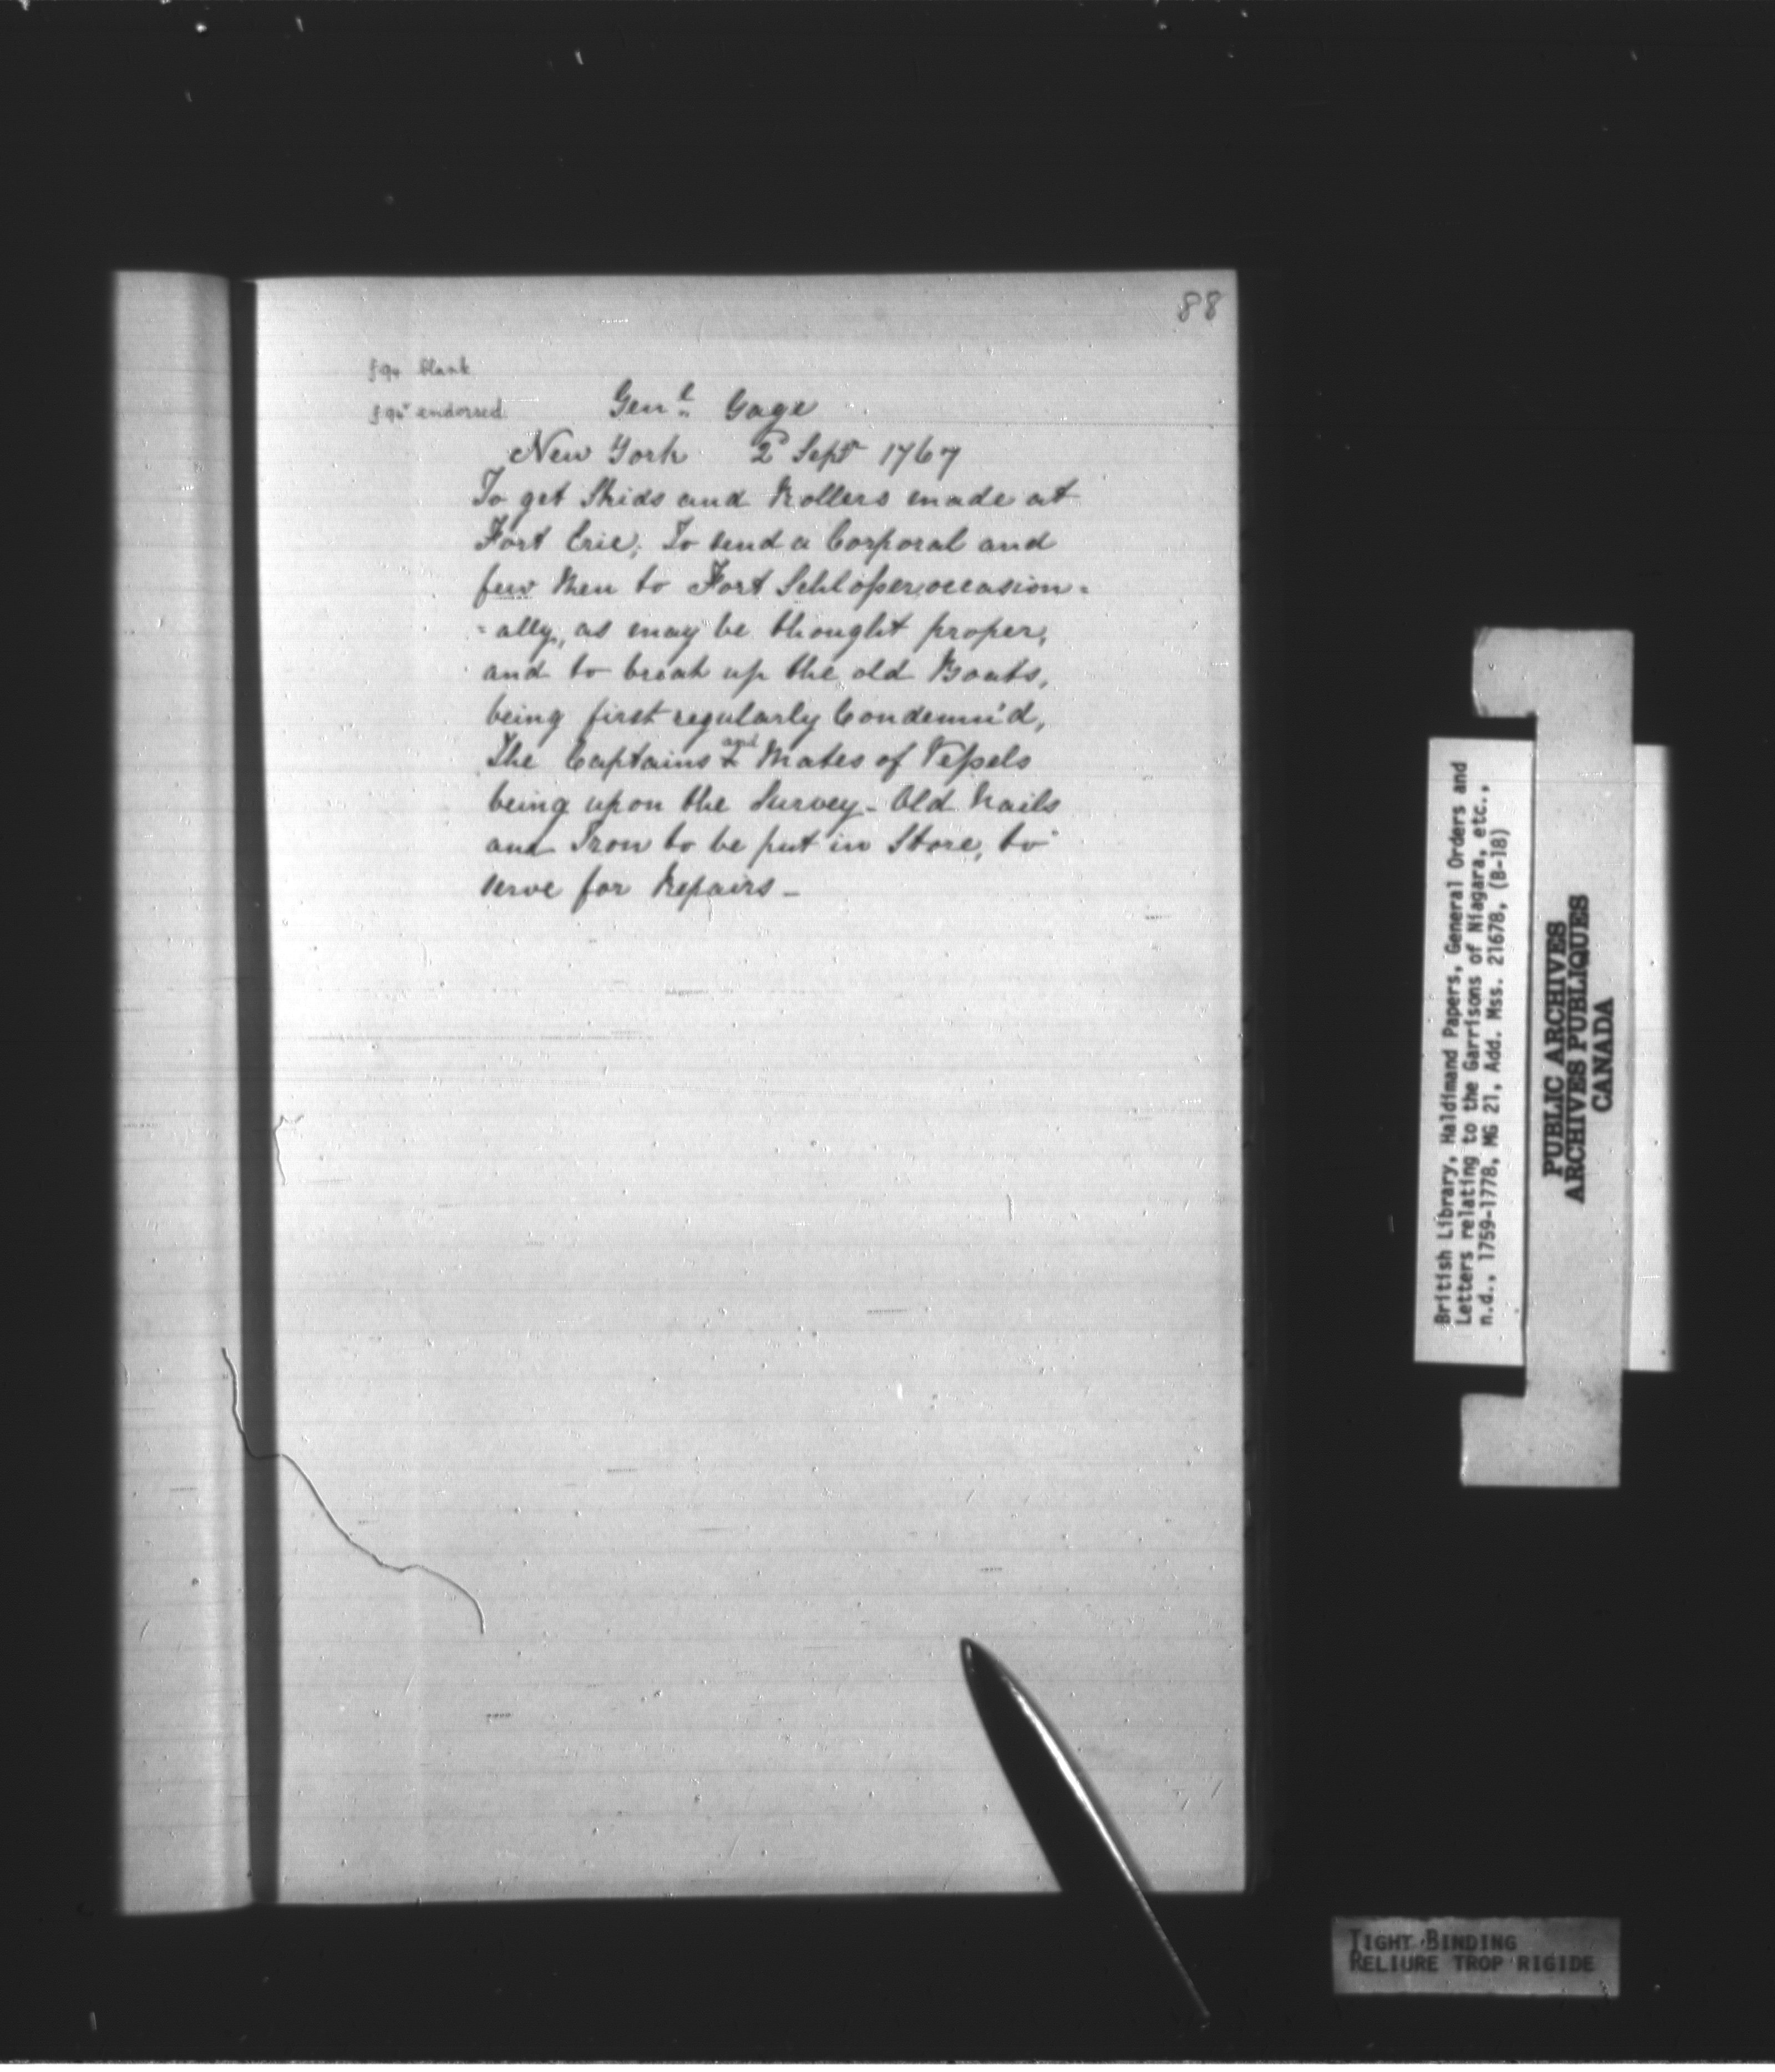 88
f 94 blank
f 94v endorsed.
Genl. Gage
New York 2d Septr 1767
To get Skids and Rollers made at
Fort Erie; To send a Corporal and
few Men to Fort Schlosser, occasion-
-ally, as may be thought proper,
and to break up the old Boats,
being first regularly Condemn'd,
The Captains and & Mates of Vessels
being upon the Survey - Old Nails
and Iron to be put in Store, to
serve for Repairs -
British Library, Haldimand Papers, General Orders and
Letters relating to the Garrisons of Niagara, etc.,
n.d., 1759-1778, MG 21, Add. Mss. 21678, (B-18)
PUBLIC ARCHIVES
ARCHIVES PUBLIQUES
CANADA
TIGHT BINDING
RELIURE TROP RIGIDE